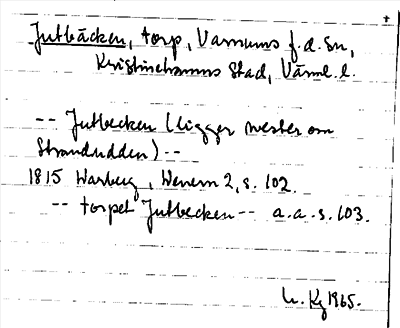 Jutbäcken, torp, Varnums f.d. sn,
Kristinehamns stad, Värml. l.
-- Jutbecken (ligger wester om
Strandudden) --
1815 Warberg, Wenern 2, s. 102.
-- torpet Jutbecken -- a.a. s. 103.
1965.